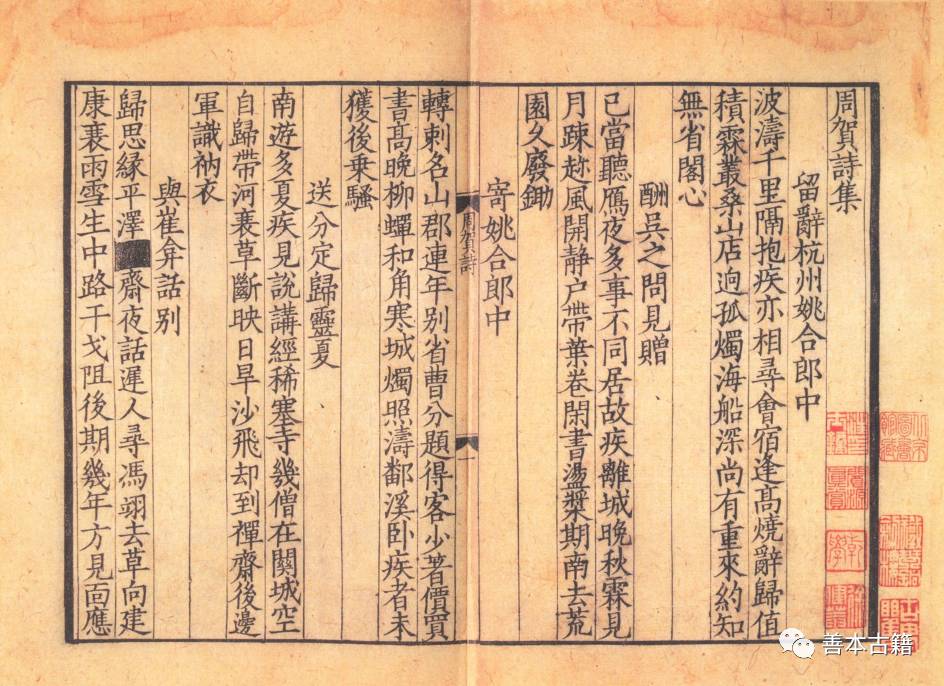 周賀詩集
留辭杭州姚合郎中
波濤千里隔抱疾亦相尋會宿逢高燒辭歸值
積霖叢桑山店逈孤燭海船深尚有重來約知
無省閣心
酬吳之問見贈
已當聽鴈夜多事不同居故疾離城晚秋霖見
月疎趂風開静户帶葉卷閑書盪槳期南去荒
園久廢鋤
寄姚合郎中
周賀詩
一
轉刺名山郡連年別省曹分題得客少著價買
書高晚柳蟬和角寒城燭照濤鄱溪卧疾者未
獲後乗騷
送分定歸靈夏
南遊多夏疾見說講經稀塞寺幾僧在關城空
自歸帶河衰草斷映日旱沙飛却到禪齋後邊
軍識衲衣
與崔弇話别
歸思緣平澤齋夜話遲人尋馮翊去草向建
康衰雨雪生中路干戈阻後期幾年方見面應
善本古籍